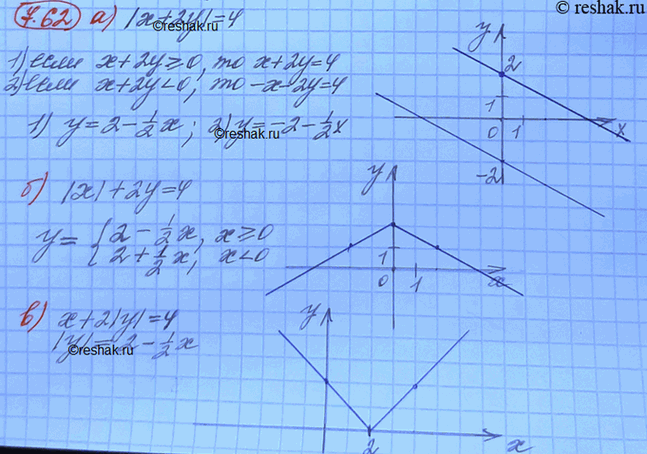 © reshak.ru
7.62 а) |x+2y|=4
© reshak.ru
1) если x+2y≥0, то x+2y=4
2) если x+2y<0, то -x-2y=4
1) y=2-1/2x; 2) y=-2-1/2x
© reshak.ru
y
2
1
0 1
x
-2
б) |x|+2y=4
y={2-1/2x, x≥0
2+1/2x, x<0
y
1
0 1
x
в) x+2|y|=4
|y|=2-1/2x
© reshak.ru
y
2
x
© reshak.ru